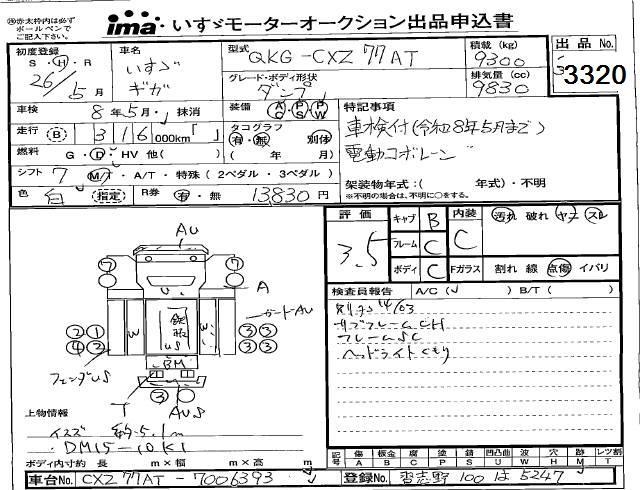 ㊟赤太枠内は必ず
ボールペンで
ご記入下さい。
ima いすゞモーターオークション出品申込書
初度登録 S・H・R 26/5月
車名 いすゞ ギガ
型式 QKG-CXZ77AT
積載(kg) 9300
出品No. 3320
グレード・ボディ形状 ダンプ
排気量(cc) 9830
車検 8年5月・抹消
装備 AC PS PW
特記事項
走行 B 316000km「 」
タコグラフ 有・無 別体
(年 月)
車検付(令和8年5月まで)
電動コボレーン
燃料 G・D・HV 他( )
シフト 7 M/T・A/T・特殊(2ペダル・3ペダル)
架装物年式:( 年式)・不明
※不明の場合は、不明に○をする。
色 白 (指定) R券 有・無 13830円
評価 3.5
キャブ B
フレーム C
ボディ C
内装 C
汚れ 破れ ヤニ スレ
Fガラス 割れ 線 点傷 イバリ
検査員報告 A/C( ) B/T( )
サブフレームCH
フレームSC
ヘッドライトくもり
AU
⑦ ⑦
A
W W
ガードAU
② ① ③ ③
④ ② ③ ③
US
BM
フェンダUS
T
③
AUS
上物情報
イスズ 約5.1m
DM15-10K1
ボディ内寸約 長 m×幅 m×高 m
記号 傷 板金 腐 塗 錆 凹凸曲 波 穴 跡 レツ割
A B C P S U W H M T
車台No. CXZ77AT-7006393
登録No. 習志野 100 は 5247